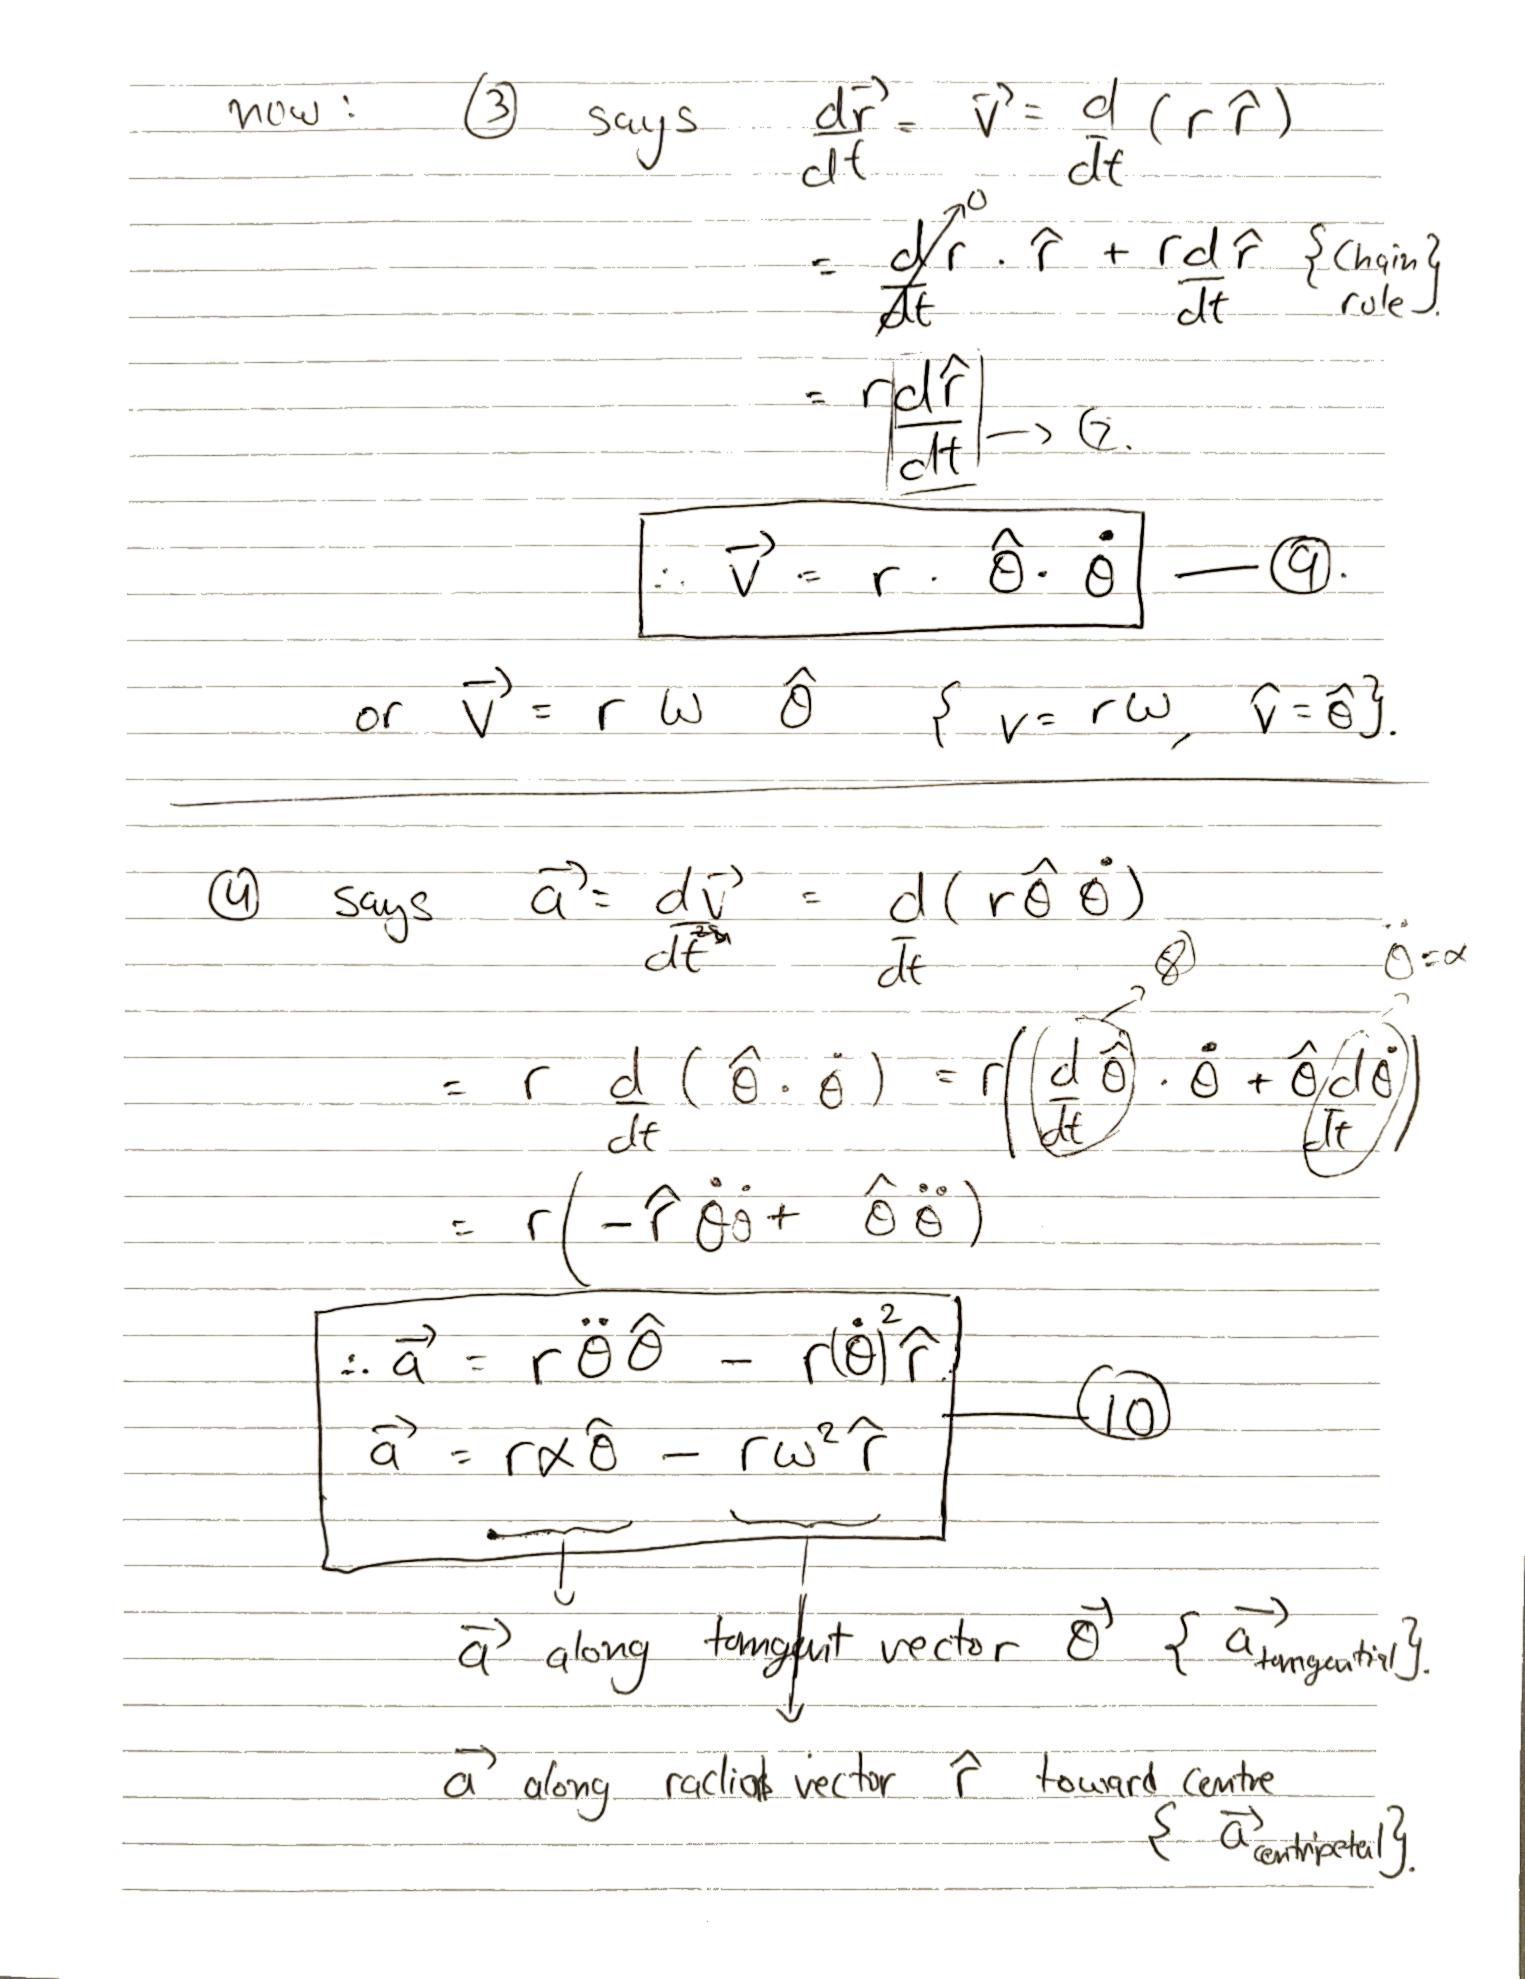 now: ③ says dr⃗/dt = v⃗ = d/dt (r r̂)
= d/dt r . r̂ + r d/dt r̂ {Chain rule}. → 0
= r |dr̂/dt| → 7.
∴ v⃗ = r . θ̂ . θ̇ — ⑨.
or v⃗ = r ω θ̂ { v = rω, v̂ = θ̂ }.
④ says a⃗ = dv⃗/dt = d/dt (r θ̂ θ̇)
⑧ θ̈ = α
= r d/dt (θ̂ . θ̇) = r( d/dt θ̂ . θ̇ + θ̂ d/dt θ̇ )
= r( -r̂ θ̇ θ̇ + θ̂ θ̈ )
∴ a⃗ = r θ̈ θ̂ - r(θ̇)² r̂.
a⃗ = rα θ̂ - rω² r̂ — ⑩
a⃗ along tangent vector θ⃗ { a⃗ tangential }.
a⃗ along radial vector r̂ toward centre
{ a⃗ centripetal }.